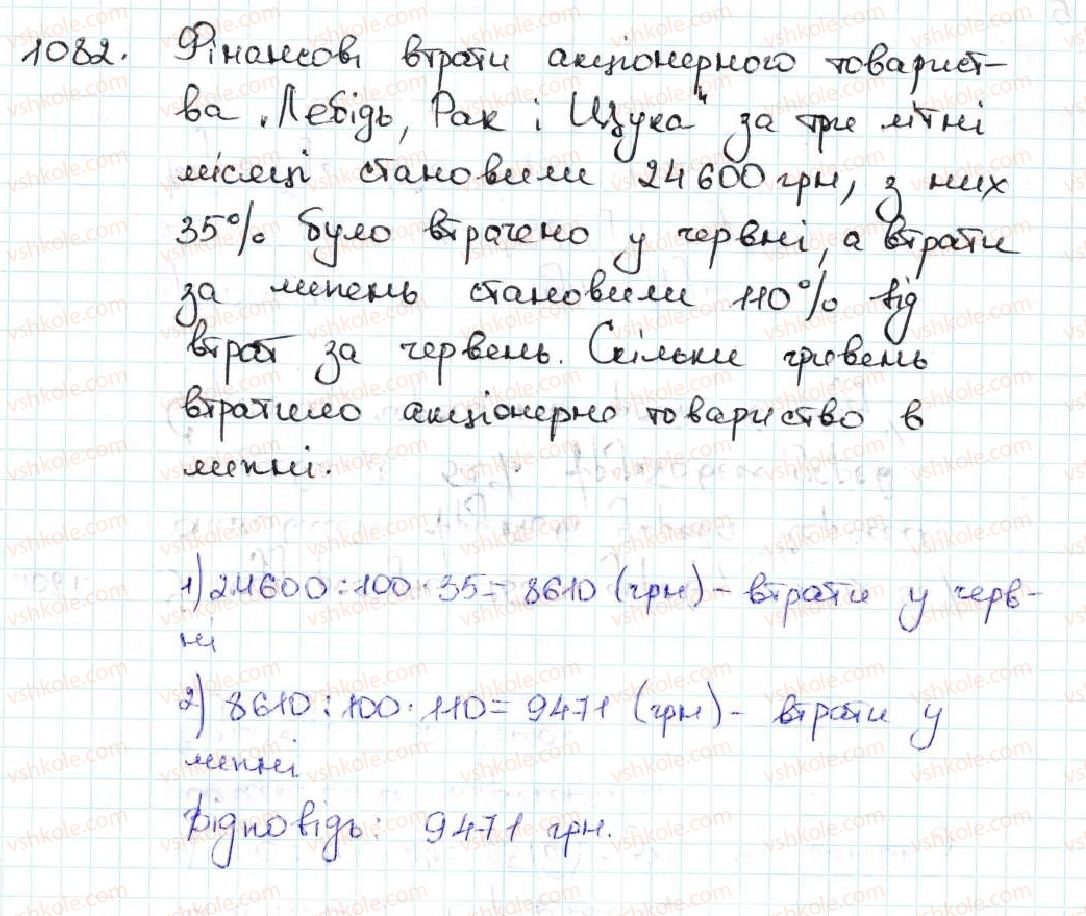 1082. Фінансові втрати акціонерного товарист-
ва „Лебідь, Рак і Щука" за три літні
місяці становили 24600 грн, з них
35% було втрачено у червні, а втрати
за липень становили 110% від
втрат за червень. Скільки гривень
втратило акціонерно товариство в
липні.
1) 24600 : 100 · 35 = 8610 (грн) - втрати у черв-
ні
2) 8610 : 100 · 110 = 9471 (грн) - втрати у
липні
Відповідь: 9471 грн.